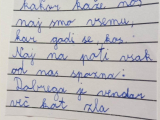 kakor kaže nas
naj smo vremu,
kar godi se kar:
Naj na poti vsak
od nas spozna:
Dobrega je vendar
več kot zla